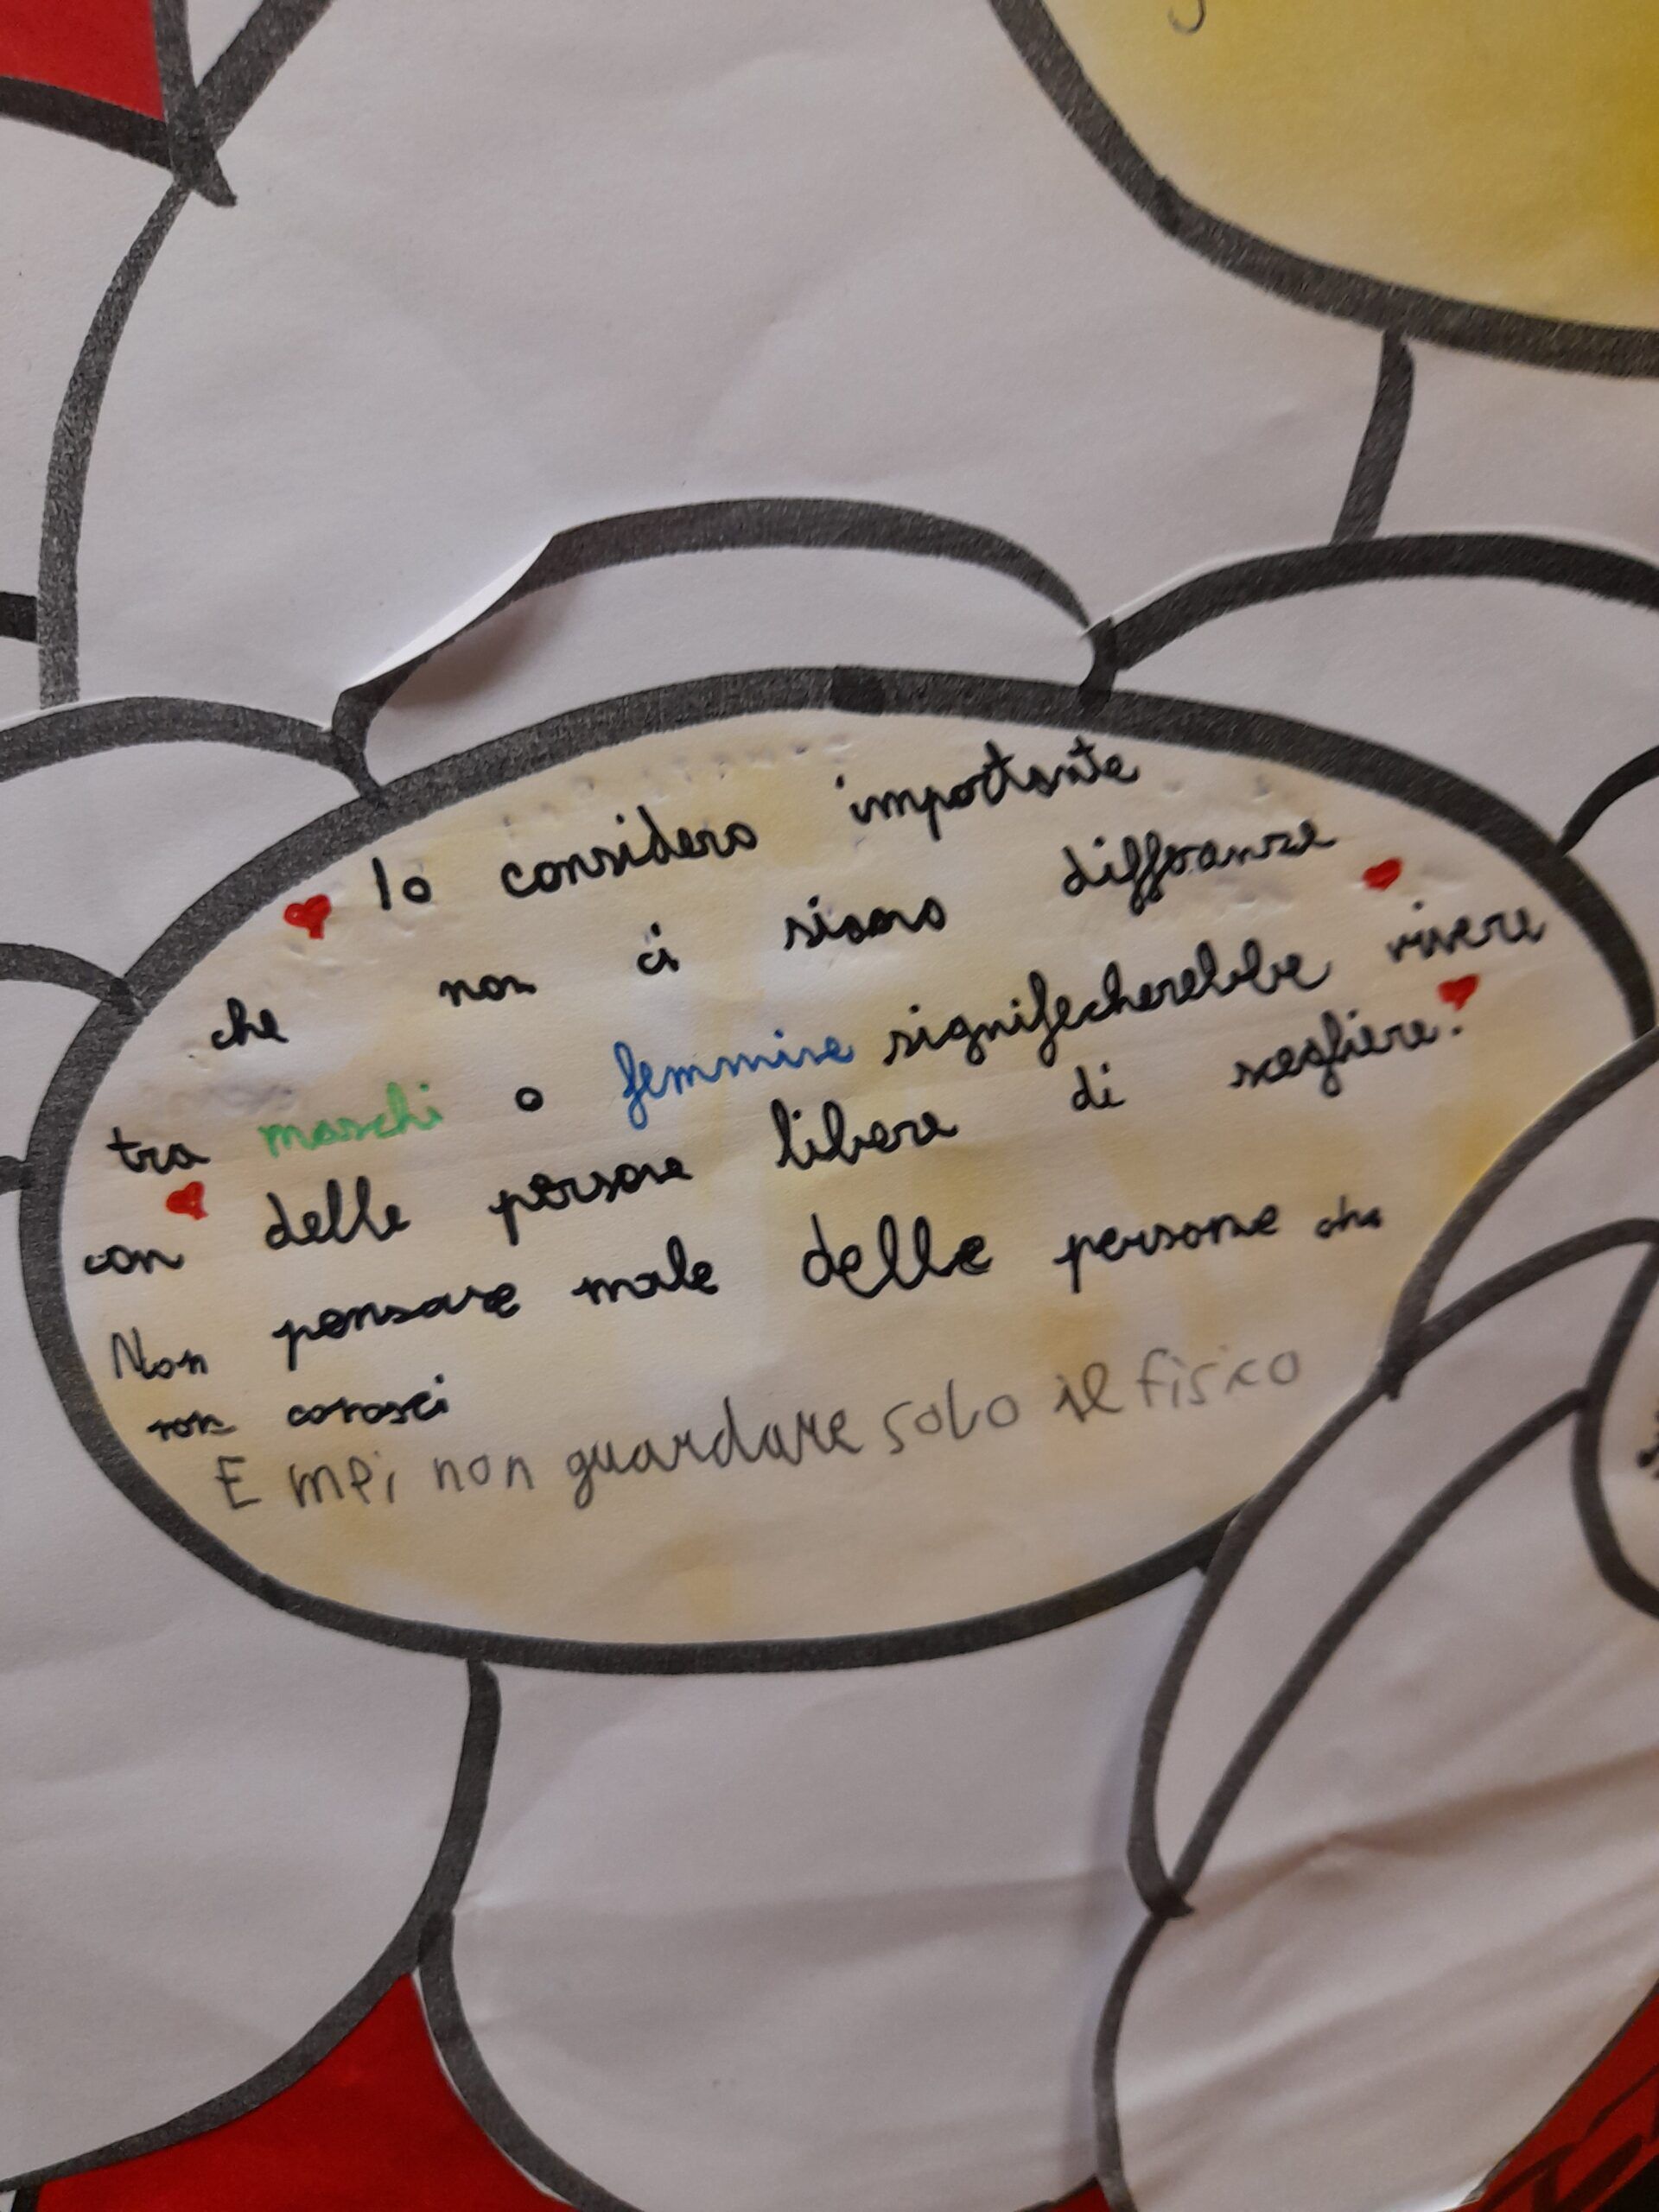 Io considero importante
che non ci siano differanze
tra maschi o femmine significherebbe vivere
con delle persone libere di scegliere!
Non pensare male delle persone che
non conosci
E mpi non guardare solo il fisico